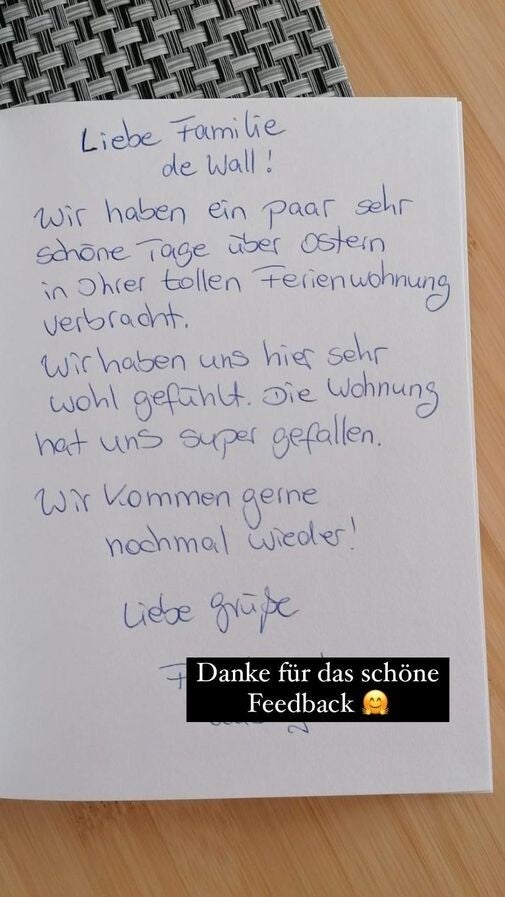 Liebe Familie
de Wall!
Wir haben ein paar sehr
schöne Tage über Ostern
in Ihrer tollen Ferienwohnung
verbracht.
Wir haben uns hier sehr
wohl gefühlt. Die Wohnung
hat uns super gefallen.
Wir kommen gerne
nochmal wieder!
Liebe Grüße
Danke für das schöne
Feedback 🤗